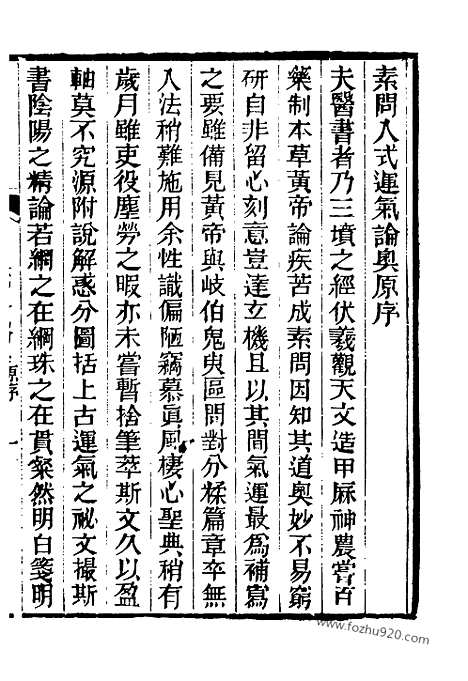 素問入式運氣論奧原序
夫醫書者乃三墳之經伏羲觀天文造甲厤神農嘗百
藥制本草黃帝論疾苦成素問因知其道奧妙不易窮
研自非留心刻意豈達玄機且以其間氣運最爲補寫
之要雖備見黃帝與岐伯鬼臾區問對分糅篇章卒無
入法稍難施用余性識偏陋竊慕眞風棲心聖典稍有
歲月雖吏役塵勞之暇亦未嘗暫捨筆萃斯文久以盈
軸莫不究源附說解惑分圖括上古運氣之祕文撮斯
書陰陽之精論若網之在綱珠之在貫粲然明白箋明
原序
www.fozhu920.com